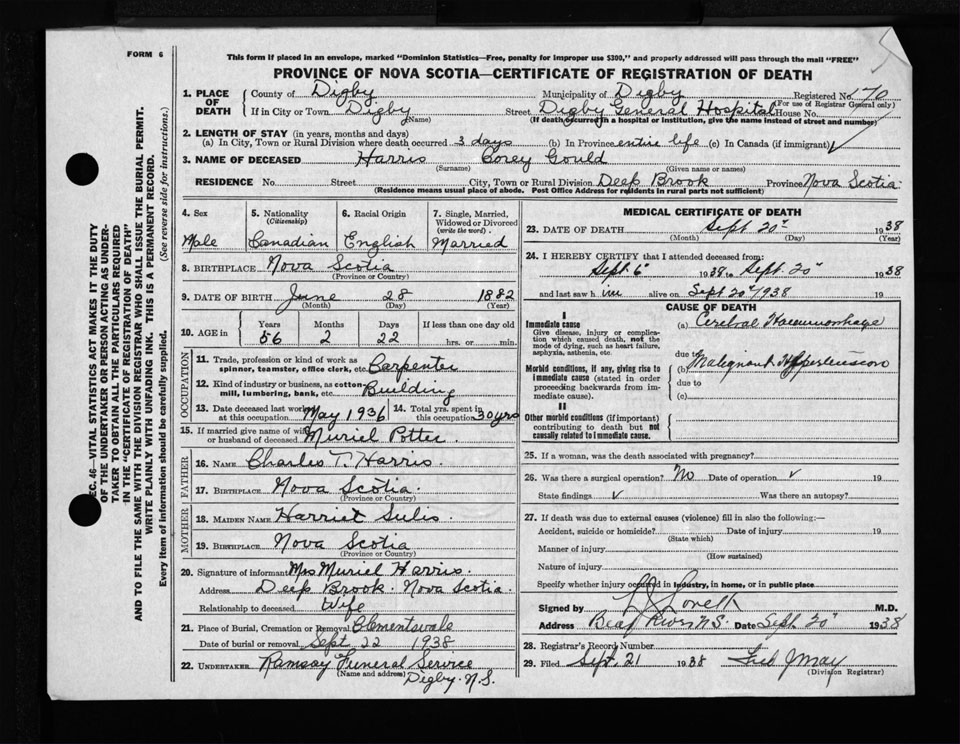 FORM 6
This form if placed in an envelope, marked "Dominion Statistics—Free, penalty for improper use $300," and properly addressed will pass through the mail "FREE"
PROVINCE OF NOVA SCOTIA—CERTIFICATE OF REGISTRATION OF DEATH
1. PLACE OF DEATH County of Digby Municipality of Digby Registered No. 170
(For use of Registrar General only)
If in City or Town Digby Street Digby General Hospital House No.
(Name) (If death occurred in a hospital or institution, give the name instead of street and number)
2. LENGTH OF STAY (in years, months and days)
(a) In City, Town or Rural Division where death occurred 3 days (b) In Province entire life (c) In Canada (if immigrant)
3. NAME OF DECEASED Harris Corey Gould
(Surname) (Given name or names)
RESIDENCE No. Street City, Town or Rural Division Deep Brook Province Nova Scotia
(Residence means usual place of abode. Post Office Address for residents in rural parts not sufficient)
4. Sex Male
5. Nationality (Citizenship) Canadian
6. Racial Origin English
7. Single, Married, Widowed or Divorced (write the word) Married
8. BIRTHPLACE Nova Scotia
(Province or Country)
9. DATE OF BIRTH June 28 1882
(Month) (Day) (Year)
10. AGE in Years Months Days If less than one day old
56 2 22 hrs. or min.
OCCUPATION
11. Trade, profession or kind of work as spinner, teamster, office clerk, etc. Carpenter
12. Kind of industry or business, as cotton-mill, lumbering, bank, etc. Building
13. Date deceased last worked at this occupation May 1936
14. Total yrs. spent in this occupation 30 yrs
15. If married give name of wife or husband of deceased Muriel Potter.
FATHER
16. NAME Charles T. Harris.
17. BIRTHPLACE Nova Scotia.
(Province or Country)
MOTHER
18. MAIDEN NAME Harriet Sulis.
19. BIRTHPLACE Nova Scotia
(Province or Country)
20. Signature of informant Mrs Muriel Harris.
Address Deep Brook. Nova Scotia.
Relationship to deceased Wife
21. Place of Burial, Cremation or Removal Clementsvale
Date of burial or removal Sept 22 1938
22. UNDERTAKER Ramsay Funeral Service
(Name and address) Digby. N.S.
MEDICAL CERTIFICATE OF DEATH
23. DATE OF DEATH Sept 20" 1938
(Month) (Day) (Year)
24. I HEREBY CERTIFY that I attended deceased from:
Sept. 6" 1938 to Sept. 20" 1938
and last saw h im alive on Sept 20" 1938 19
CAUSE OF DEATH
I
Immediate cause
Give disease, injury or complication which caused death, not the mode of dying, such as heart failure, asphyxia, asthenia, etc.
(a) Cerebral Haemmorhage
due to
Morbid conditions, if any, giving rise to immediate cause (stated in order proceeding backwards from immediate cause).
(b) Malignant Hypertension
due to
(c)
II
Other morbid conditions (if important) contributing to death but not causally related to immediate cause.
25. If a woman, was the death associated with pregnancy?
26. Was there a surgical operation? No Date of operation 19
State findings Was there an autopsy?
27. If death was due to external causes (violence) fill in also the following:—
Accident, suicide or homicide? Date of injury 19
(State which)
Manner of injury
(How sustained)
Nature of injury
Specify whether injury occurred in Industry, in home, or in public place
Signed by Lovett M.D.
Address Bear River N.S. Date Sept. 20" 1938
28. Registrar's Record Number
29. Filed Sept. 21 1938 Fred J May
(Division Registrar)
SEC. 46—VITAL STATISTICS ACT MAKES IT THE DUTY
OF THE UNDERTAKER OR PERSON ACTING AS UNDER-
TAKER TO OBTAIN ALL THE PARTICULARS REQUIRED
IN THE "CERTIFICATE OF REGISTRATION OF DEATH"
AND TO FILE THE SAME WITH THE DIVISION REGISTRAR WHO SHALL ISSUE THE BURIAL PERMIT.
WRITE PLAINLY WITH UNFADING INK. THIS IS A PERMANENT RECORD.
Every item of information should be carefully supplied. (See reverse side for instructions.)